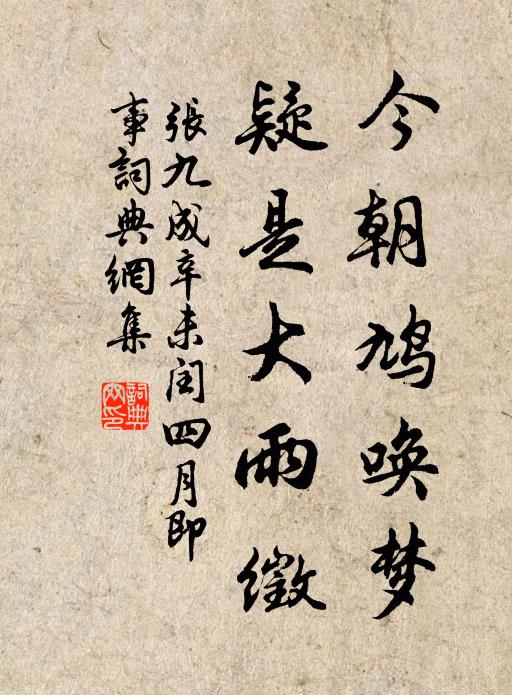 今朝鸠唤梦
疑是大雨徵
張九成辛未闰四月即
事詞典網集
詞典
网印